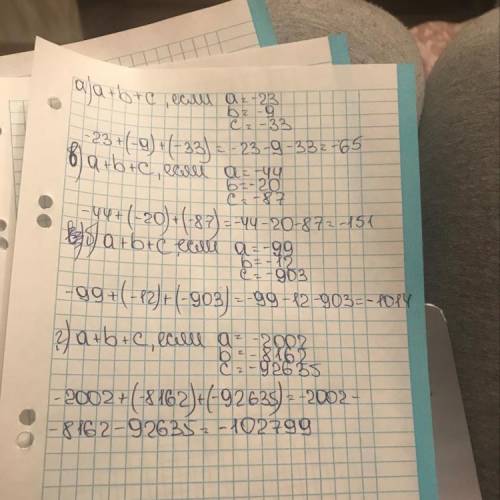 а) a+b+c, если a=-23
b=-9
c=-33
-23+(-9)+(-33)=-23-9-33=-65
в) a+b+c, если a=-44
b=-20
c=-87
-44+(-20)+(-87)=-44-20-87=-151
б) a+b+c, если a=-99
b=-12
c=-903
-99+(-12)+(-903)=-99-12-903=-1014
г) a+b+c, если a=-2002
b=-8162
c=-92635
-2002+(-8162)+(-92635)=-2002-
-8162-92635=-102799